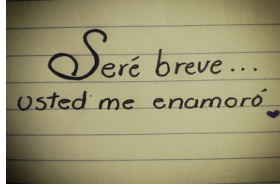 Seré breve...
usted me enamoró